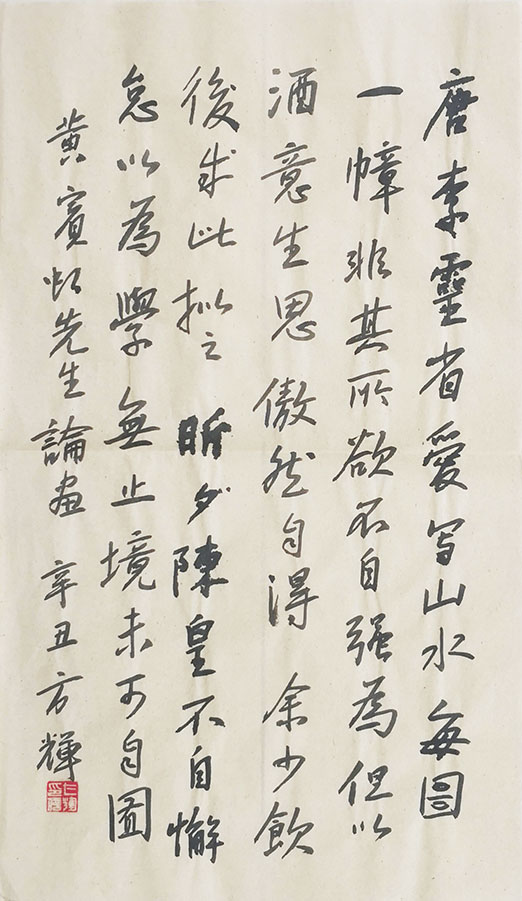 唐李靈省愛写山水每圖
一幛非其所欲不自强為但以
酒意生思傲然自得余少飲
後成此拟之昕夕陳皇不自懈
怠以為學無止境未可自圖
黃賓虹先生論畫 辛丑方輝